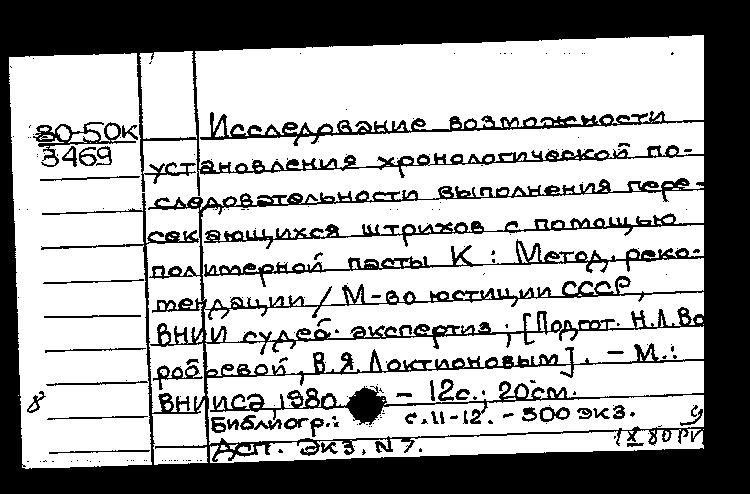 80-50к
3469
Исследование возможности
установления хронологической по-
следовательности выполнения пере-
секающихся штрихов с помощью
полимерной пасты К : Метод. реко-
мендации / М-во юстиции СССР,
ВНИИ судеб. экспертиз ; [Подгот. Н.Л. Во
робьевой, В.Я. Локтионовым]. – М.:
8
ВНИИСЭ, 1980. – 12с.; 20см.
Библиогр.: с.11-12. – 500 экз.
Асп. Экз. N 7.